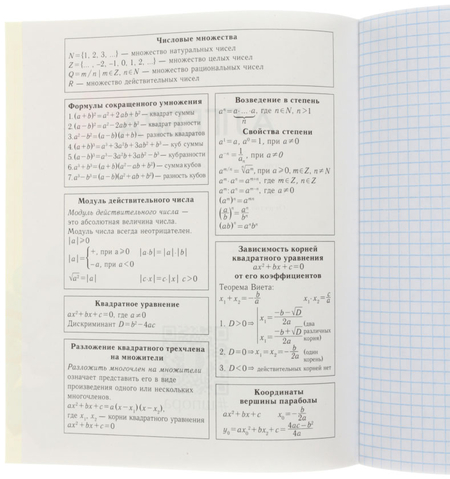 Числовые множества
N={1, 2, 3, ...} — множество натуральных чисел
Z={... , −2, −1, 0, 1, 2, ...} — множество целых чисел
Q=m/n | m∈Z, n∈N — множество рациональных чисел
R — множество действительных чисел
Формулы сокращенного умножения
1.(a+b)²=a²+2ab+b² — квадрат суммы
2.(a−b)²=a²−2ab+b² — квадрат разности
3.a²−b²=(a−b)(a+b) — разность квадратов
4.(a+b)³=a³+3a²b+3ab²+b³ — куб суммы
5.(a−b)³=a³−3a²b+3ab²−b³ — куб разности
6.a³+b³=(a+b)(a²−ab+b²) — сумма кубов
7.a³−b³=(a−b)(a²+ab+b²) — разность кубов
Модуль действительного числа
Модуль действительного числа —
это абсолютная величина числа.
Модуль числа всегда неотрицателен.
|a|⩾0
|a|={+, при a⩾0 |a·b|=|a|·|b|
−a, при a<0
√a²=|a| |c·x|=c|x| c>0
Квадратное уравнение
ax²+bx+c=0, где a≠0
Дискриминант D=b²−4ac
Разложение квадратного трехчлена
на множители
Разложить многочлен на множители
означает представить его в виде
произведения одного или нескольких
многочленов.
ax²+bx+c=a(x−x₁)(x−x₂),
где x₁, x₂ — корни квадратного уравнения
ax²+bx+c=0
Возведение в степень
aⁿ=a·...·a, где n∈N, n>1
n
Свойства степени
a¹=a, a⁰=1, при a≠0
a⁻ⁿ=1/aⁿ, при a≠0
aᵐ/ⁿ=ⁿ√aᵐ, при a⩾0, m∈Z, n∈N
aᵐ·aⁿ=aᵐ⁺ⁿ, где m∈Z, n∈Z
aᵐ:aⁿ=aᵐ⁻ⁿ, где a≠0
(aᵐ)ⁿ=aᵐⁿ
(a/b)ⁿ=aⁿ/bⁿ
(ab)ⁿ=aⁿbⁿ
Зависимость корней
квадратного уравнения
ax²+bx+c=0
от его коэффициентов
Теорема Виета:
x₁+x₂=−b/a x₁·x₂=c/a
1. D>0⇒ x₁=(−b−√D)/2a (два
различных
x₂=(−b+√D)/2a корня)
2. D=0⇒x₁=x₂=−b/2a (один
корень)
3. D<0⇒ действительных корней нет
Координаты
вершины параболы
ax²+bx+c x₀=−b/2a
y₀=ax₀²+bx₀+c=(4ac−b²)/4a